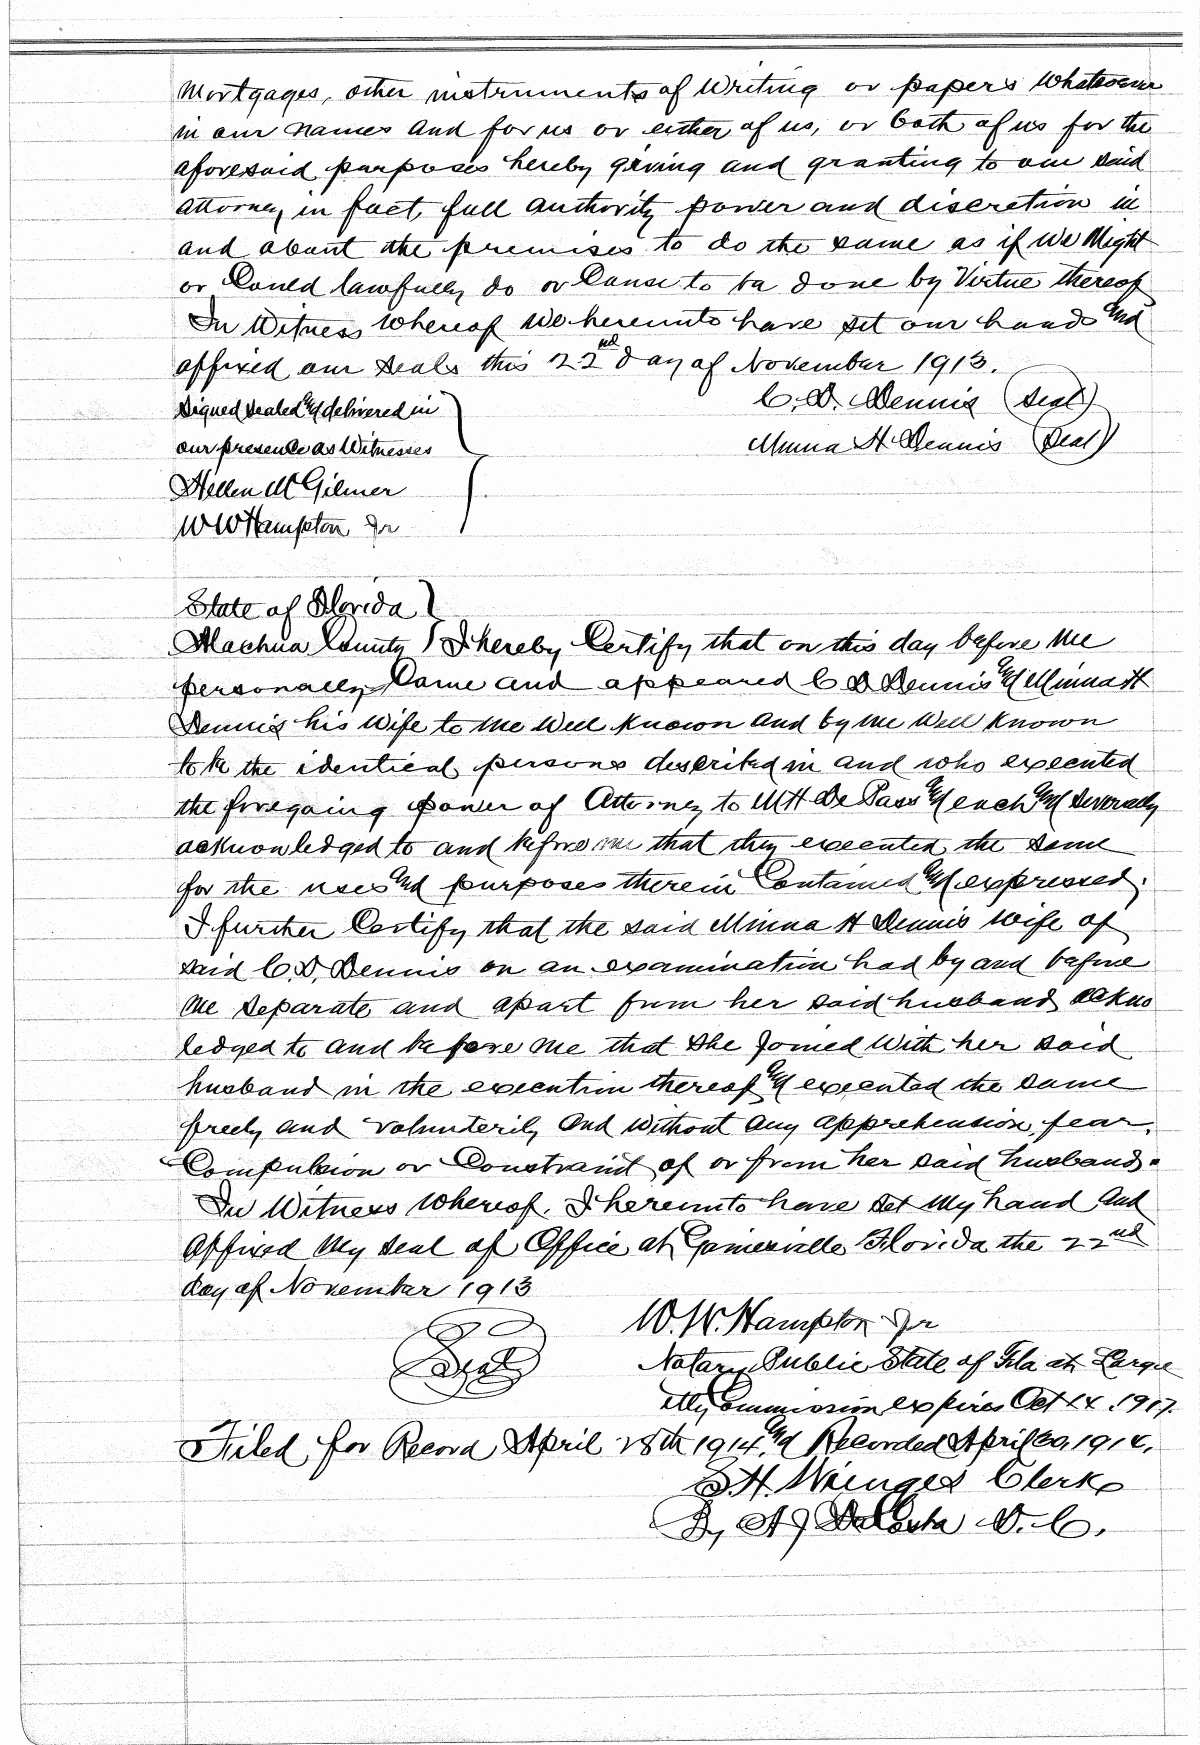 Mortgages, other instruments of Writing or papers Whatsoever
in our names and for us or either of us, or both of us for the
aforesaid purposes hereby giving and granting to our said
attorney in fact, full authority power and discretion in
and about the premises to do the same as if We Might
or Could lawfully do or Cause to be done by Virtue thereof
In Witness Whereof We hereunto have set our hands and
affixed our seals this 22nd day of November 1913.
Signed sealed and delivered in
our presence as Witnesses
C. D. Dennis (Seal)
Minna H Dennis (Seal)
Hellen McGilmer
W W Hampton Jr
State of Florida
Alachua County I hereby Certify that on this day before me
personally Came and appeared C D Dennis and Minna H
Dennis his Wife to me Well Known and by me Well Known
to be the identical persons described in and who executed
the foregoing power of Attorney to M H De Pass and each and severally
acknowledged to and before me that they executed the same
for the uses and purposes therein Contained and expressed.
I further Certify that the said Minna H Dennis wife of
said C. D. Dennis on an examination had by and before
me separate and apart from her said husband ackno
ledged to and before me that she joined With her said
husband in the execution thereof and executed the same
freely and volunterily and without any apprehension, fear,
Compulsion or Constraint of or from her said husband.
In Witness Whereof, I hereunto have set My hand and
affixed My seal of Office at Gainesville Florida the 22nd
day of November 1913
W. W. Hampton Jr
Seal
Notary Public State of Fla at Large
My Commission expires Oct 14. 1917.
Filed for Record April 28th 1914, and Recorded April 30, 1914.
S. H. Wienges Clerk
By A J DaCosta D. C.